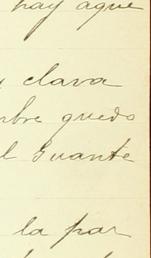 hay aque
y clava
mbre quedo
el guante
la par